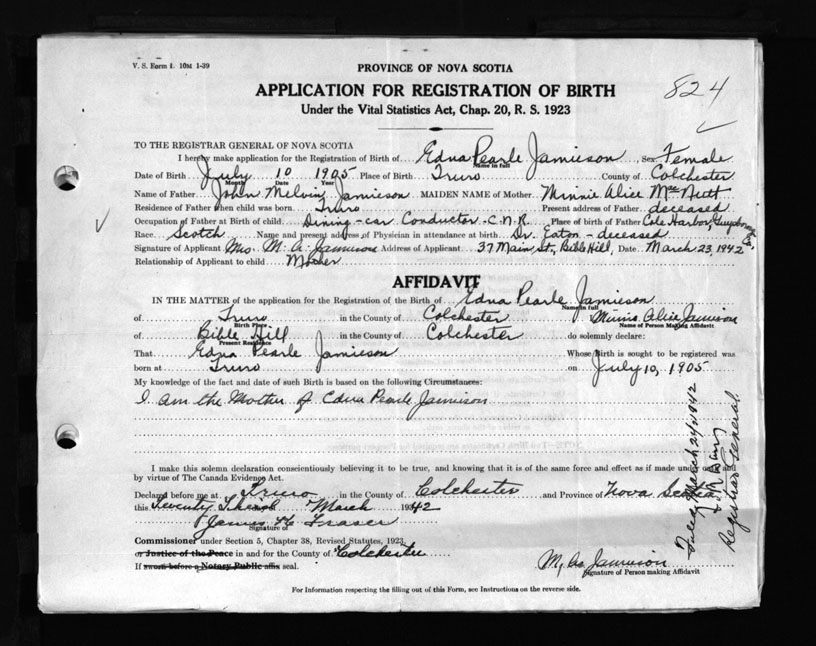 V. S. Form 1. 10M 1-39
PROVINCE OF NOVA SCOTIA
824
APPLICATION FOR REGISTRATION OF BIRTH
Under the Vital Statistics Act, Chap. 20, R. S. 1923
TO THE REGISTRAR GENERAL OF NOVA SCOTIA
I hereby make application for the Registration of Birth of Edna Pearle Jamieson, Sex Female
Name in full
Date of Birth July 10 1905 Place of Birth Truro County of Colchester
Month Date Year
Name of Father John Melvin Jamieson MAIDEN NAME of Mother Minnie Alice McNutt
Residence of Father when child was born Truro Present address of Father deceased
Occupation of Father at Birth of child Dining-car Conductor - C.N.R. Place of birth of Father Cole Harbor, Guysborough Co.
Race Scotch Name and present address of Physician in attendance at birth Dr. Eaton - deceased
Signature of Applicant Mrs. M. A. Jamieson Address of Applicant 37 Main St, Bible Hill, Date March 23, 1942
Relationship of Applicant to child Mother
AFFIDAVIT
IN THE MATTER of the application for the Registration of the Birth of Edna Pearle Jamieson
Name in full
of Truro in the County of Colchester I, Minnie Alice Jamieson
Birth Place Name of Person Making Affidavit
of Bible Hill in the County of Colchester do solemnly declare:
Present Residence
That Edna Pearle Jamieson Whose Birth is sought to be registered was
born at Truro on July 10, 1905
My knowledge of the fact and date of such Birth is based on the following Circumstances:
I am the Mother of Edna Pearle Jamieson
I make this solemn declaration conscientiously believing it to be true, and knowing that it is of the same force and effect as if made under oath and
by virtue of The Canada Evidence Act.
Declared before me at Truro in the County of Colchester and Province of Nova Scotia
this Twenty Third March 1942
James H Fraser
Signature of
Commissioner under Section 5, Chapter 38, Revised Statutes, 1923,
or Justice of the Peace in and for the County of Colchester
If sworn before a Notary Public affix seal.
M. A. Jamieson
Signature of Person making Affidavit
For Information respecting the filling out of this Form, see Instructions on the reverse side.
Filed March 24/1942
Registrar General